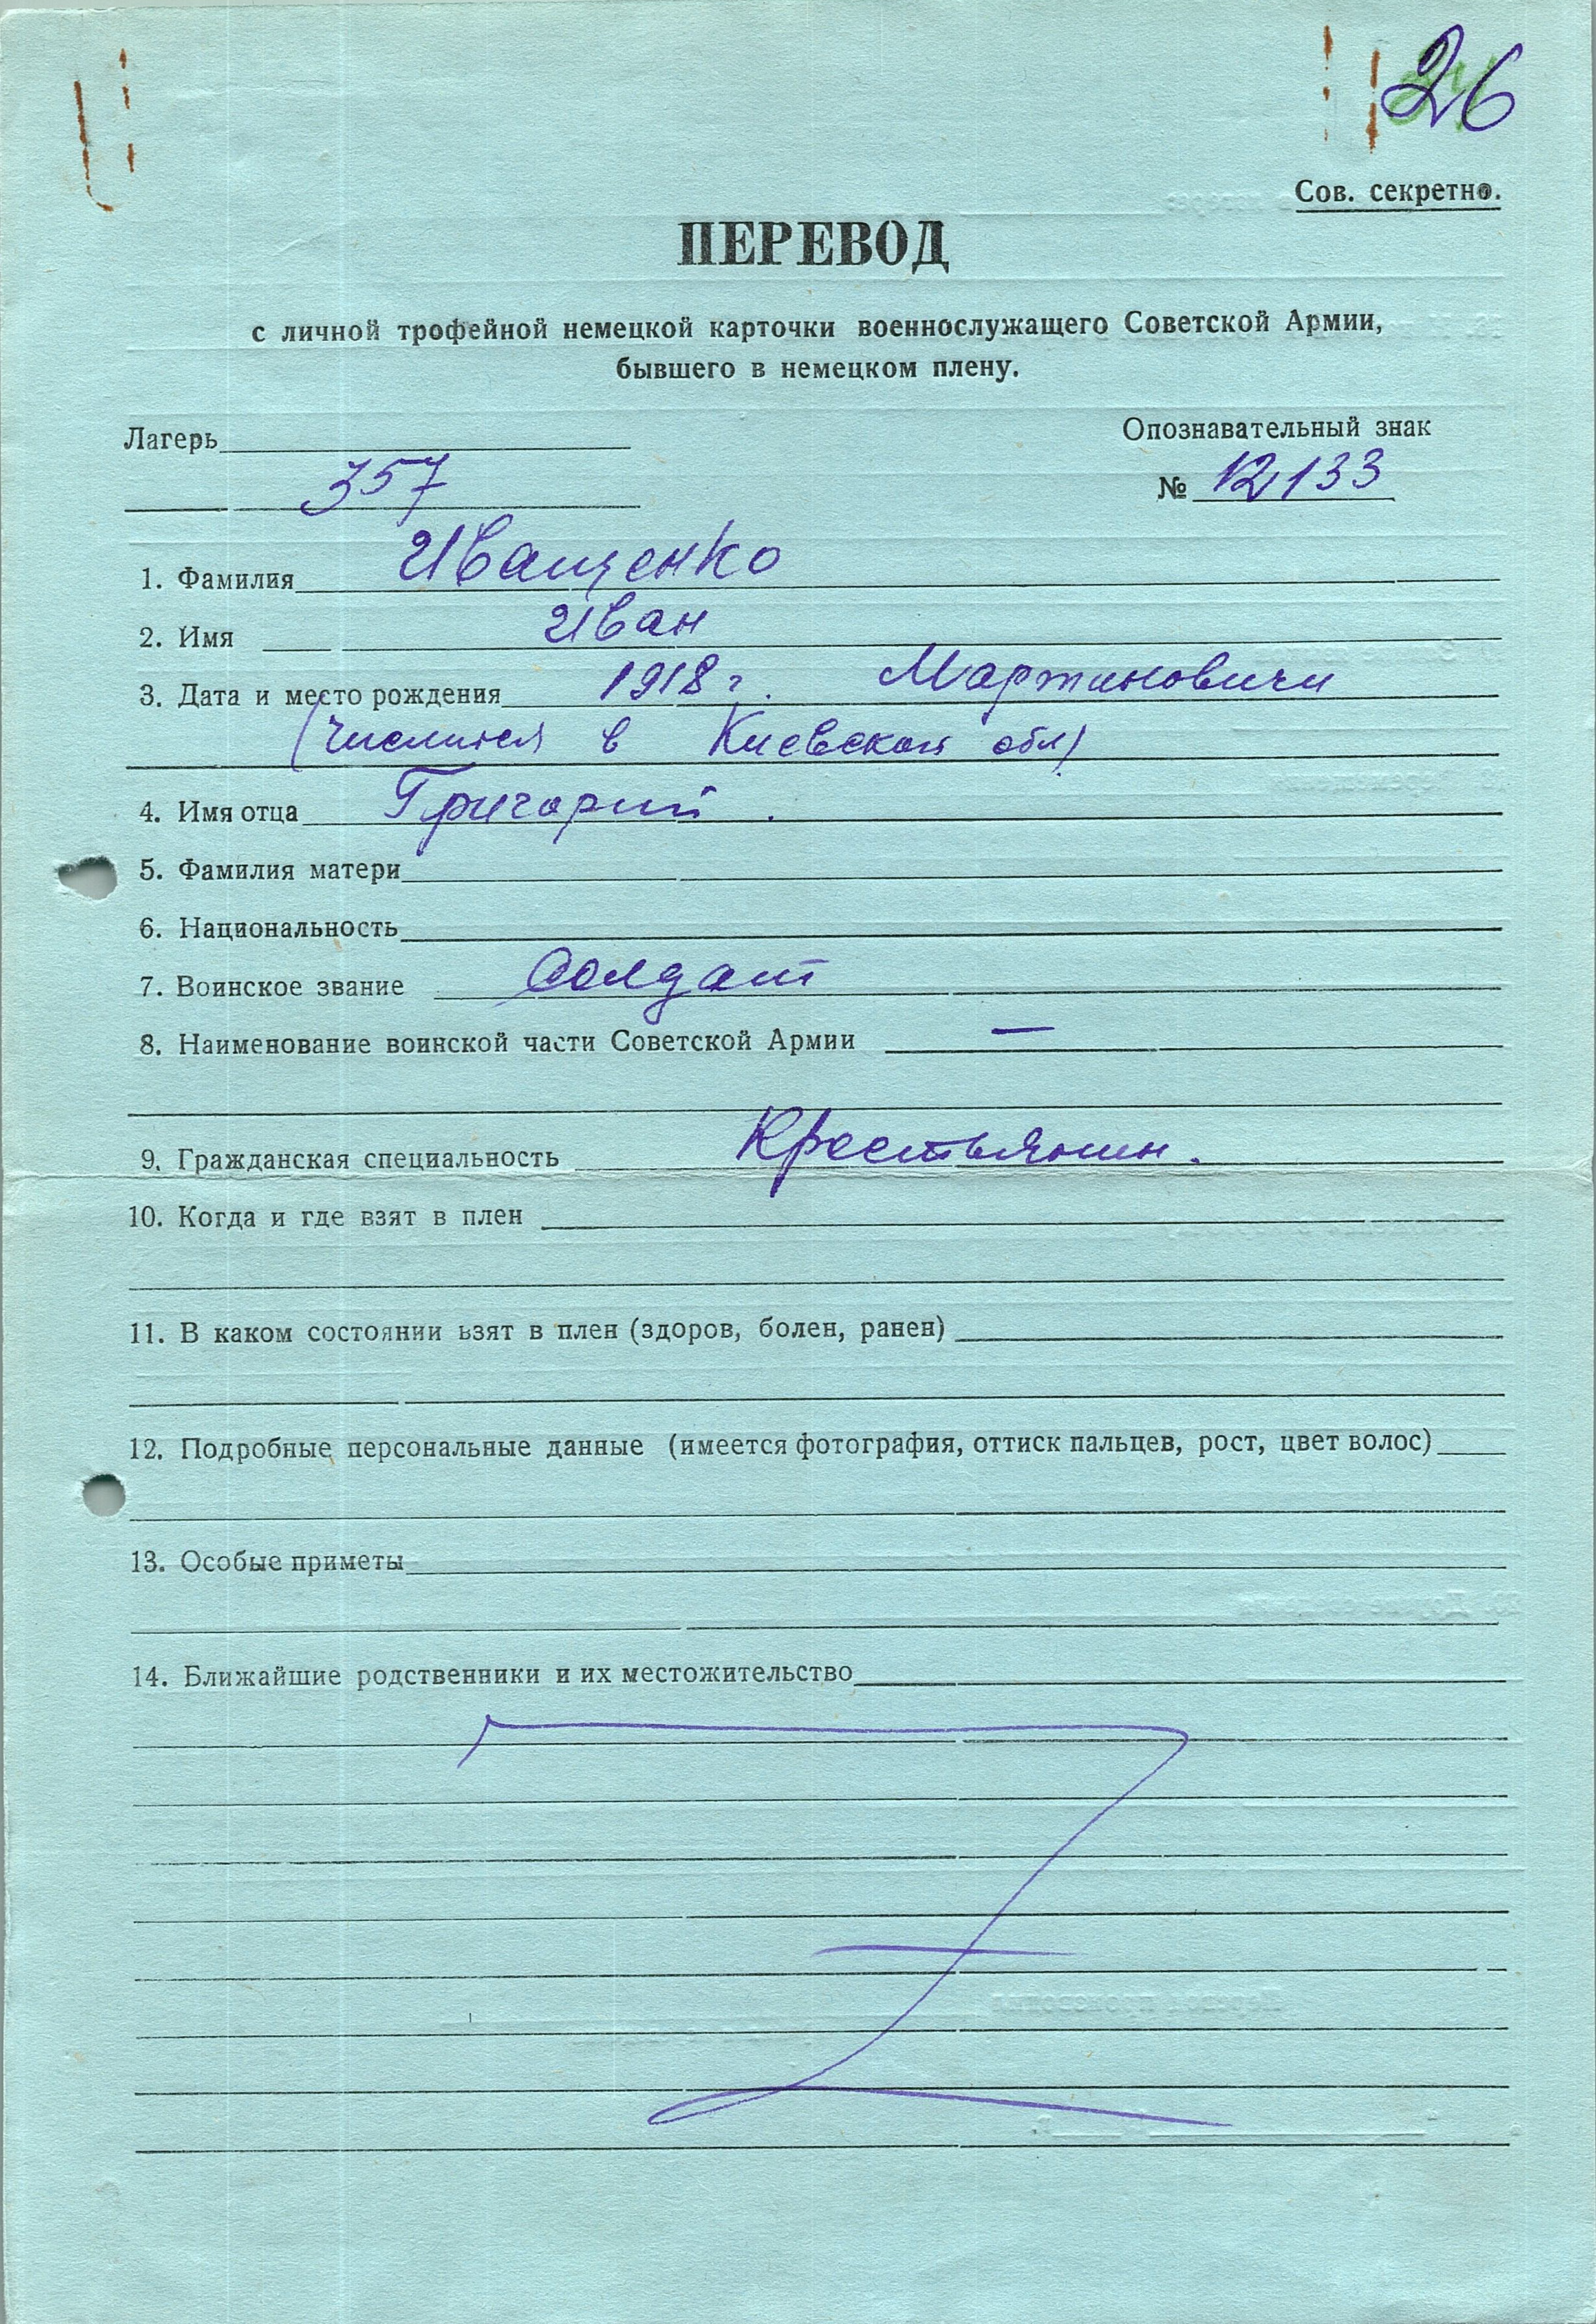 26
Сов. секретно.
ПЕРЕВОД
с личной трофейной немецкой карточки военнослужащего Советской Армии,
бывшего в немецком плену.
Лагерь
Опознавательный знак
357
№ 12133
1. Фамилия Иващенко
2. Имя Иван
3. Дата и место рождения 1918 г. Мартиновичи
(числится в Киевской обл)
4. Имя отца Григорий.
5. Фамилия матери
6. Национальность
7. Воинское звание Солдат
8. Наименование воинской части Советской Армии —
9. Гражданская специальность Крестьянин.
10. Когда и где взят в плен
11. В каком состоянии взят в плен (здоров, болен, ранен)
12. Подробные персональные данные (имеется фотография, оттиск пальцев, рост, цвет волос)
13. Особые приметы
14. Ближайшие родственники и их местожительство